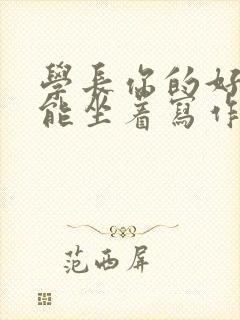 學長你的好
能坐着寫作
范西屏